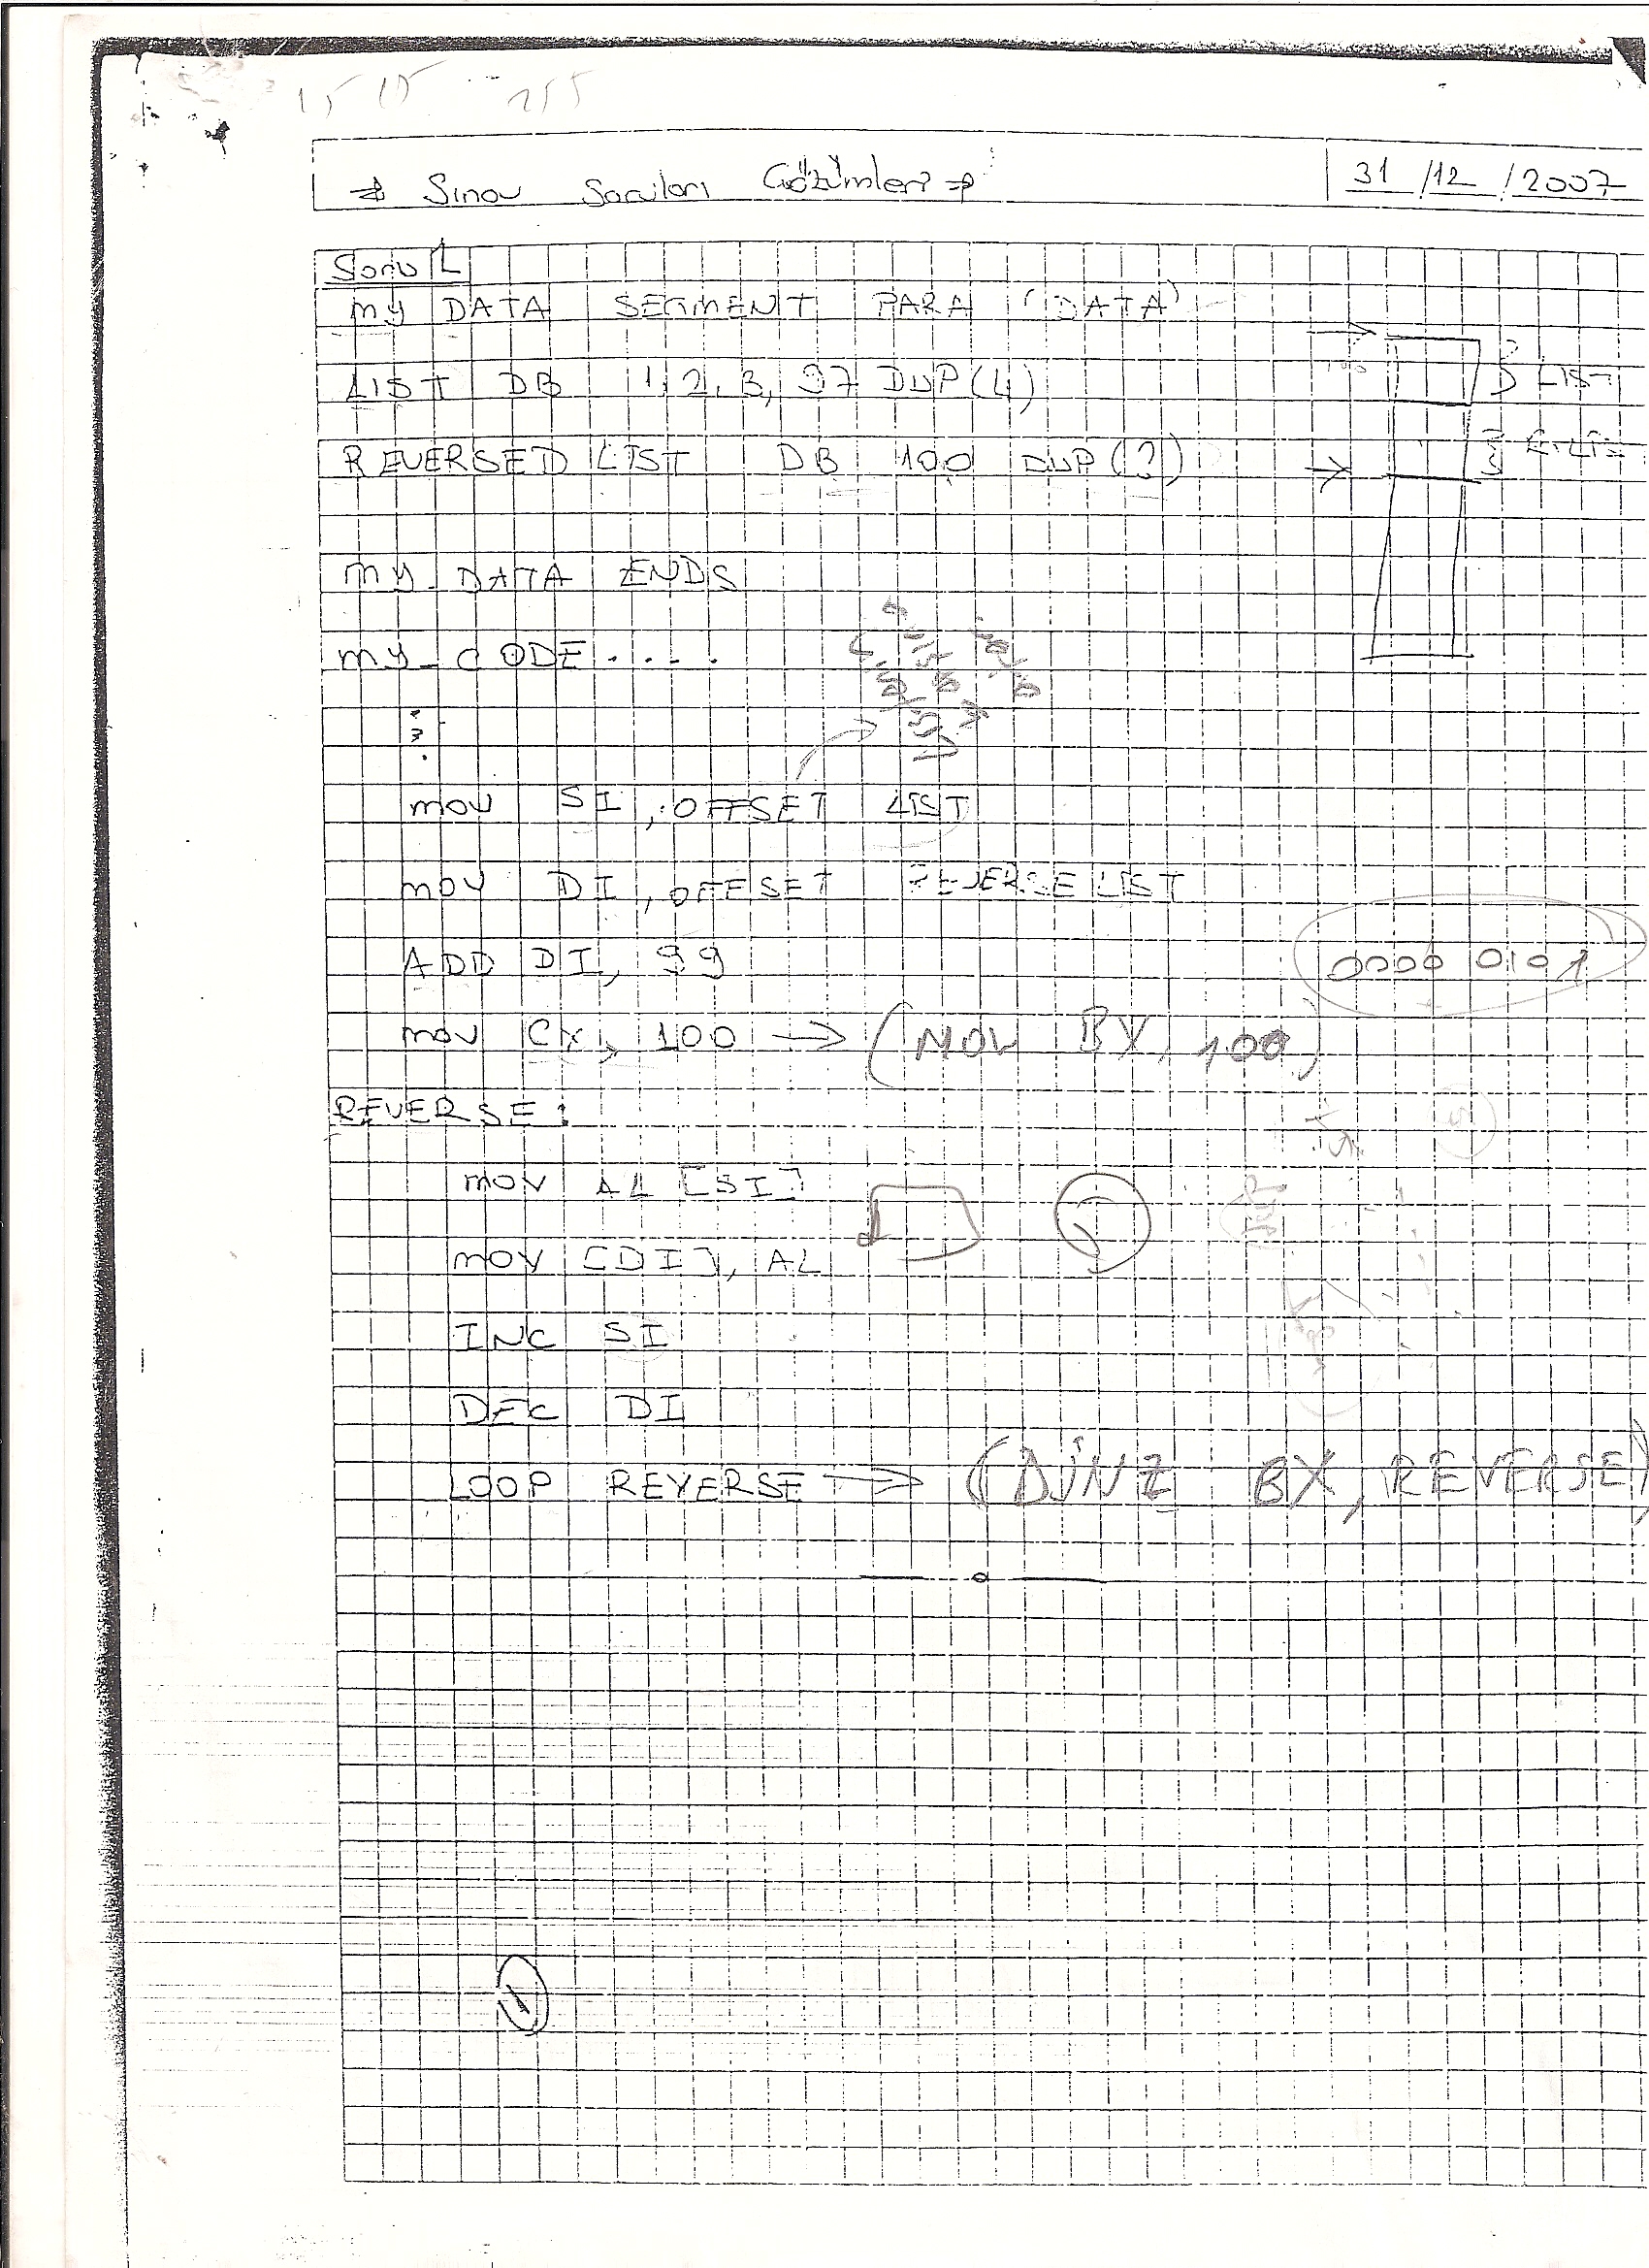 15 15 255
⇒ Sınav Soruları Çözümleri ⇒ 31/12/2007
Soru 1
MY DATA SEGMENT PARA 'DATA'
LIST DB 1,2,3, 97 DUP(4)
LIST
REVERSED LIST DB 100 DUP(?)
MY_DATA ENDS
MY_CODE....
MOV SI, OFFSET LIST
MOV DI, OFFSET REVERSE LIST
ADD DI, 99
0000 0101
MOV CX, 100 → (MOV BX, 100)
REVERSE:
MOV AL [SI]
MOV [DI], AL
INC SI
DEC DI
LOOP REVERSE → (DJNZ BX, REVERSE)
1